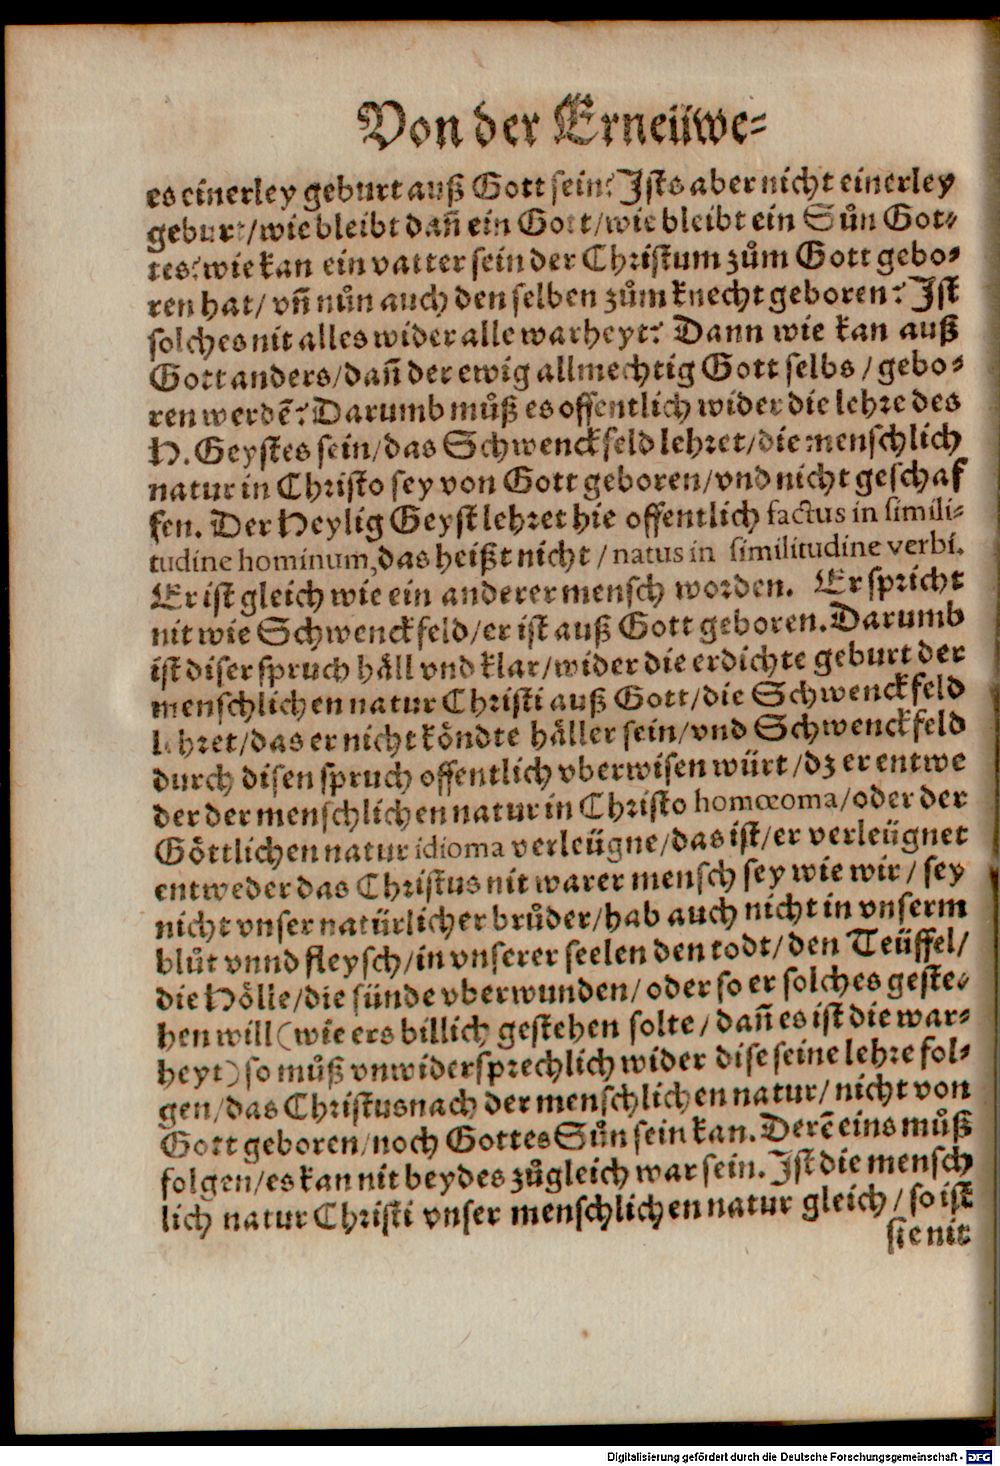 Von der Erneüwe-
es einerley geburt auß Gott sein? Ists aber nicht einerley
geburt/ wie bleibt dañ ein Gott/ wie bleibt ein Sůn Got-
tes? wie kan ein vatter sein der Christum zům Gott gebo-
ren hat/ vñ nůn auch den selben zům knecht geboren? Ist
solches nit alles wider alle warheyt? Dann wie kan auß
Gott anders/ dañ der ewig allmechtig Gott selbs/ gebo-
ren werdẽ? Darumb můß es offentlich wider die lehre des
H. Geystes sein/ das Schwenckfeld lehret/ die menschlich
natur in Christo sey von Gott geboren/ vnd nicht geschaf
fen. Der Heylig Geyst lehret hie offentlich factus in simili-
tudine hominum, das heißt nicht/ natus in similitudine verbi.
Er ist gleich wie ein anderer mensch worden. Er spricht
nit wie Schwenckfeld/ er ist auß Gott geboren. Darumb
ist diser spruch håll vnd klar/ wider die erdichte geburt der
menschlichen natur Christi auß Gott/ die Schwenckfeld
lehret/ das er nicht köndte håller sein/ vnd Schwenckfeld
durch disen spruch offentlich vberwisen würt/ dz er entwe
der der menschlichen natur in Christo homœoma/ oder der
Göttlichen natur idioma verleügne/ das ist/ er verleügnet
entweder das Christus nit warer mensch sey wie wir/ sey
nicht vnser natürlicher brůder/ hab auch nicht in vnserm
blůt vnnd fleysch/ in vnserer seelen den todt/ den Teüffel/
die Hölle/ die sünde vberwunden/ oder so er solches geste-
hen will (wie ers billich gestehen solte/ dañ es ist die war-
heyt) so můß vnwidersprechlich wider dise seine lehre fol-
gen/ das Christus nach der menschlichen natur/ nicht von
Gott geboren/ noch Gottes Sůn sein kan. Derẽ eins můß
folgen/ es kan nit beydes zůgleich war sein. Ist die mensch
lich natur Christi vnser menschlichen natur gleich/ so ist
sie nit
Digitalisierung gefördert durch die Deutsche Forschungsgemeinschaft - DFG